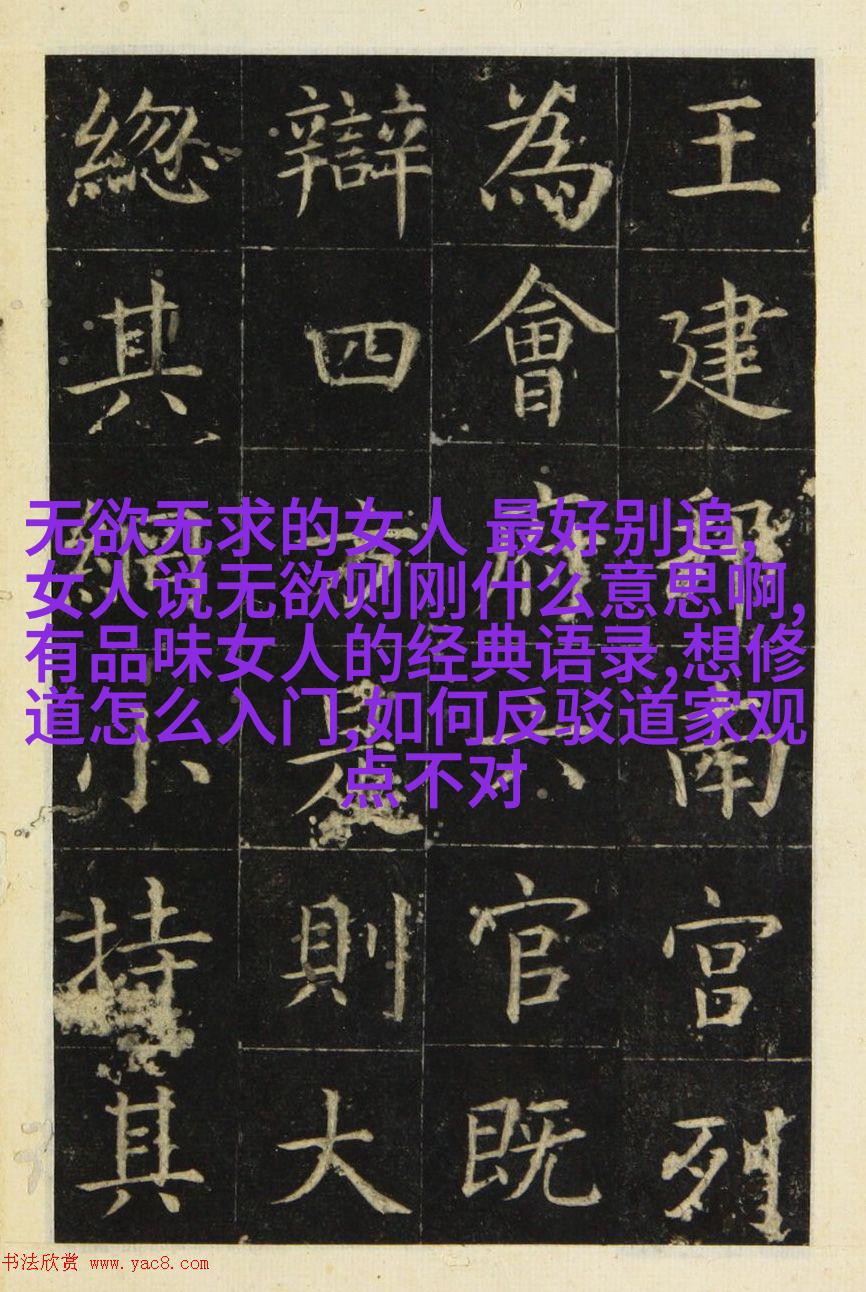 王建都南宮列
為會府六官既
辯四方是則大
緫其綱小持其
无欲无求的女人 最好别追,
女人说无欲则刚什么意思啊,
有品味女人的经典语录,想修
道怎么入门,如何反驳道家观
点不对
书法欣赏 www.yac8.com